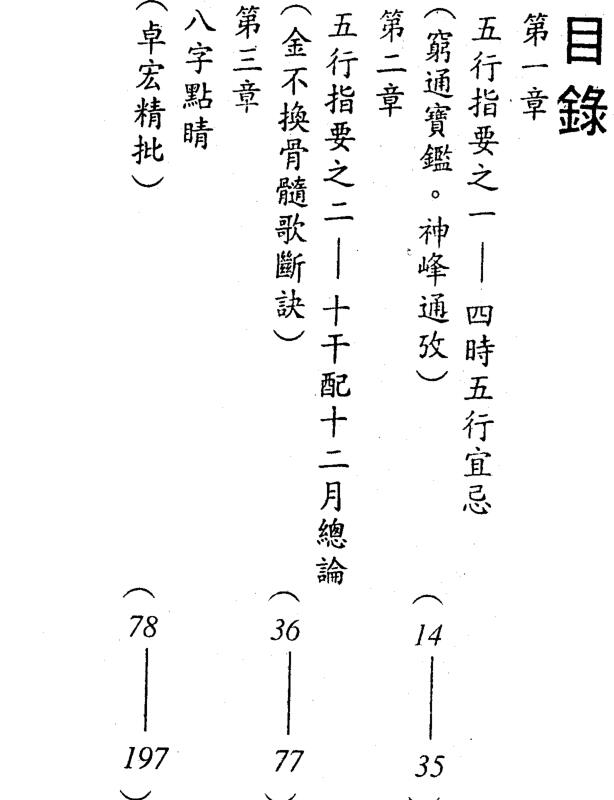 目錄
第一章
五行指要之一—四時五行宜忌
(窮通寶鑑。神峰通攷)
(14—35)
第二章
五行指要之二—十干配十二月總論
(金不換骨髓歌斷訣)
(36—77)
第三章
八字點睛
(卓宏精批)
(78—197)